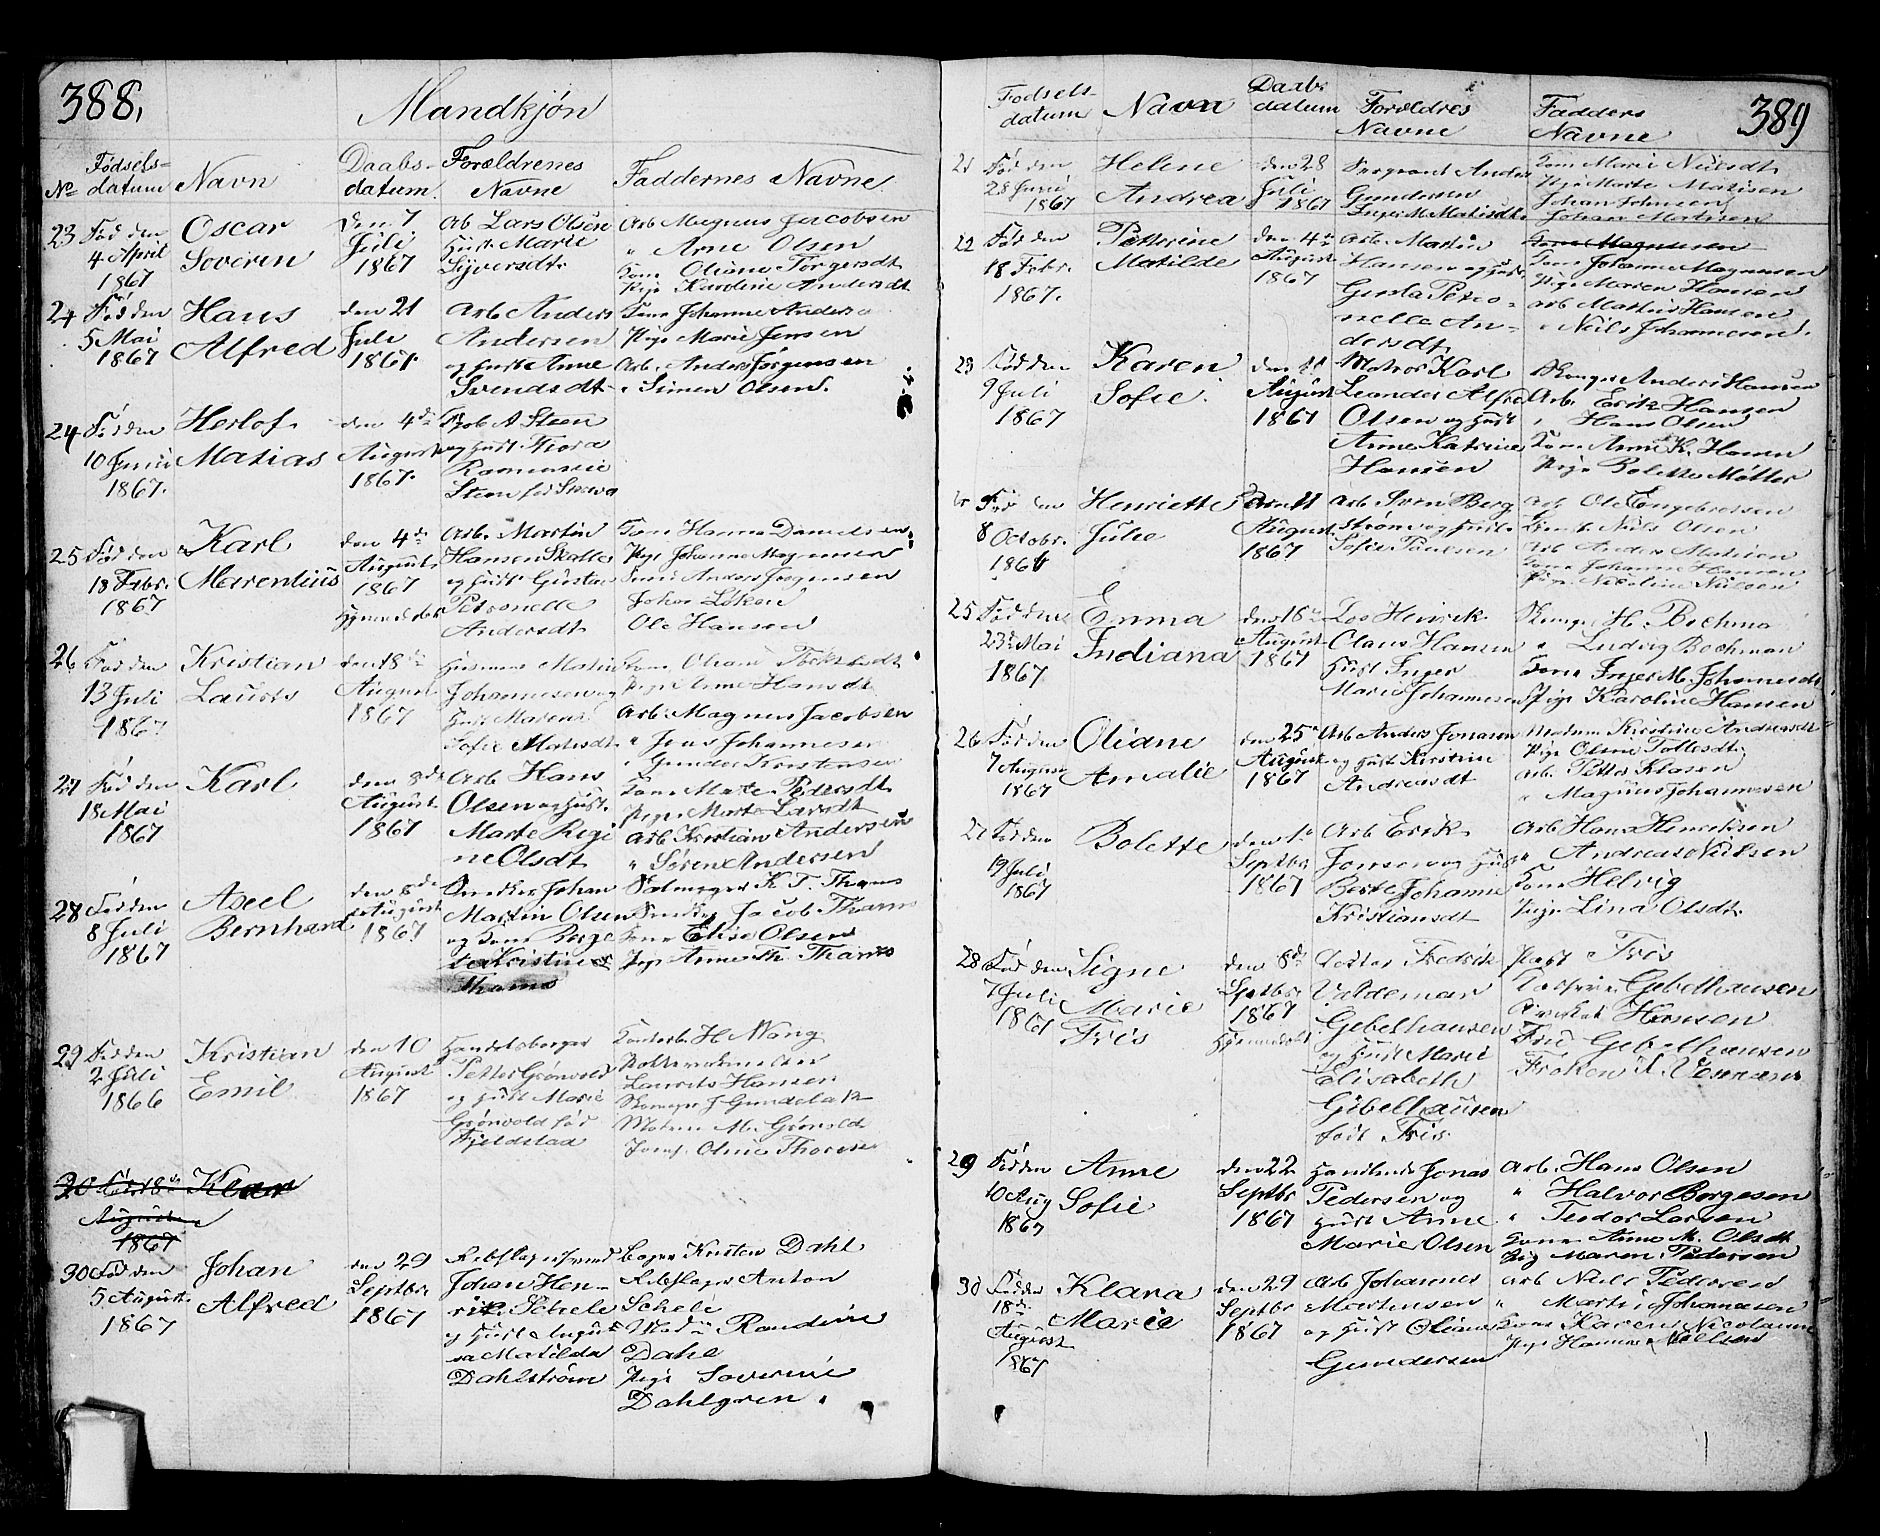 388.
Mandkjøn
No
Fødsels-
datum
Navn
Daabs-
datum.
Forældrenes
Navne
Faddernes Navne
23 Fød den
4 April
1867
Oscar
Soveren
Den 7.
Juli
1867
Arb Lars Olsen
Hust. Marie
Syversdt.
Arb Magnus Jacobsen
" Arne Olsen
Kone Oliane Torgersdt
Pige Karoline Andersdt
24 Fød den
5 Mai
1867
Hans
Alfred
den 21
Juli
1867
Arb Anders
Andersen
og Hust Anne
Svendsdt.
Kone Johanne Anders
Pige Marie Jensen
Arb. Anders Jørgensen
" Simen Olsen.
24 Fød den
10 Junii
1867.
Herlof
Matias
den 4de
August
1867.
A Steen
og Hust. Thora
Steen fød
25 Fød den
18 Febr.
1867
Karl
Marentius
den 4de
August
1867
Hjemmedøbt
Arb. Martin
Hansen
og Hust Gusta
Petronelle
Andersdt
Kone Hanna Danielsen
Pige Johanne Magnusen
Anders Jørgensen
Johan Løken
Ole Hansen
26 Fød den
13 Juli
1867
Kristian
Laurits
den 18de
August
1867
Husmand Martin
Johannesen og
Hust Maren
Sofie Matisdt
Kone Oliane
Pige Anne Hansdt
Arb. Magnus Jacobsen
" Jens Johannesen
" Gunder Torstensen
27 Fød den
18 Mai
1867
Karl
den 8de
August
1867
Arb Hans
Olsen og Hust.
Marte Regi
ne Olsdt
Kone Marte Pedersdt
Pige Marte Larsdt
Arb Kristian Andersen
" Søren Andersen
28 Fød den
8 Juli
1867
Axel
Bernhard
den 8de
August
1867
Snedker Johan
Martin Olsen
og Kone Berge
te Kristine
Thams
K T. Thams
Snedker Jacob Thams
Kone Elise Olsen
Pige Anne Th. Thams
29 Fød den
2 Juli
1866
Kristian
Emil
den 10
August
1867
Handelsborger
Petter Grønvold
og Hust Marie
Grønvold fød
Fjeldstad
H Wang
Laurits Hansen
J Gundelak
Madam M. Grønvold
Jomf. Oline Thoresen
30 Født 18de
August
1867
Klara
30 Fød den
5 August
1867
Johan
Alfred
den 29
Septbr
1867
Rebslagersvend
Johan Hen-
rik Schele
og Hust Augus
ta Matilda
Dahlstrøm
Bager Kristen Dahl
Rebslager Anton
Schele
Madm Randine
Dahl
Pige Soverine
Dahlgren.
389
Fødsels-
datum
Navn
Daabs
datum
Forældres
Navne
Fadders
Navne
21 Fød den
28 Juni
1867
Helene
Andrea
den 28
Juli
1867
Sergeant Anders
Gundersen
Inger M. Matisdt
Kone Marie Nielsdt
Pige Marte Matisen
Johan Johnsen
Johan Matisen
22 Fød den
18 Febr.
1867.
Petterine
Matilde
den 4de
August
1867
Arb. Martin
Hansen og Hust.
Gusta Petro-
nelle An-
dersdt
Kone Magnusen
Kone Johanne Magnusen
Pige Maren Hansen
Arb Matius Hansen
" Niels Johannesen.
23 Fød den
9 Juli
1867
Karen
Sofie.
den 11
August
1867
Matros Karl
Leander Alfred
Olsen og Hust
Anne Katrine
Hansen
Skomager Anders Hansen
Arb. Erik Hansen
" Hans Olsen
Kone Anne K. Hansen
Pige Bolette Møller
Fød den
8 Octobr.
1866
Henriette
Julie
den 11
August
1867
Arb Sven Berg
Strøm og Hust.
Sofie Paulsen
Arb. Ole Engebretsen
Niels Olsen
Arb Anders Matisen
Kone Johanne Hansen
Pige Nicoline Nielsen
25 Fød den
23de Mai
1867
Emma
Indiana
den 16de
August
1867
Los Henrik
Olaus Hansen
Hust Inger
Marie Johannesen
Skomager H. Bochman
" Ludvig Bochman
Kone Inger M. Johannesdt
Pige Karoline Hansen
26 Fød den
7 August
1867
Oliane
Amalie
den 25de
August
1867
Arb Anders Jonasen
og Hust Kirstine
Andreasdt
Madam Kristine Andreasdt
Pige Oline Tollefsdt.
Arb. Petter Klasen
" Magnus Johannesen
27 Fød den
19 Juli
1867
Bolette
den 1ste
Septbr
1867
Arb Erik
Jonsen og Hust
Berte Johanne
Kristiansdt
Arb Hans Henriksen
" Andreas Nielsen
Kone Helvig
Pige Lina Olsdt
28 Fød den
7 Juli
1867
Signe
Marie
Friis
den 8de
Septbr
1867
Hjemmedøbt
Doctor Fredrik
Valdemar
Gebelhausen
og Hust Marie
Elisabeth
Gebelhausen
født Friis
Friis
Gebelhausen
Hansen
Fru Gebelhausen
Frøken
29 Fød den
10 Aug
1867
Anne
Sofie
den 22
Septbr
1867
Jonas
Pedersen og
Hust Anne
Marie Olsen
Arb. Hans Olsen
" Halvor Borgesen
" Teodor Larsen
Kone Anne M. Olsdt
Pig Maren Pedersen
30 Fød den
18de
August
1867
Klara
Marie
den 29
Septbr
1867
Arb Johannes
Mortensen
og Hust Oliane
Gundersen
Arb Niels Pedersen
" Martin Johannesen
Kone Karen Nicolaine
Pige Hanna Nielsen